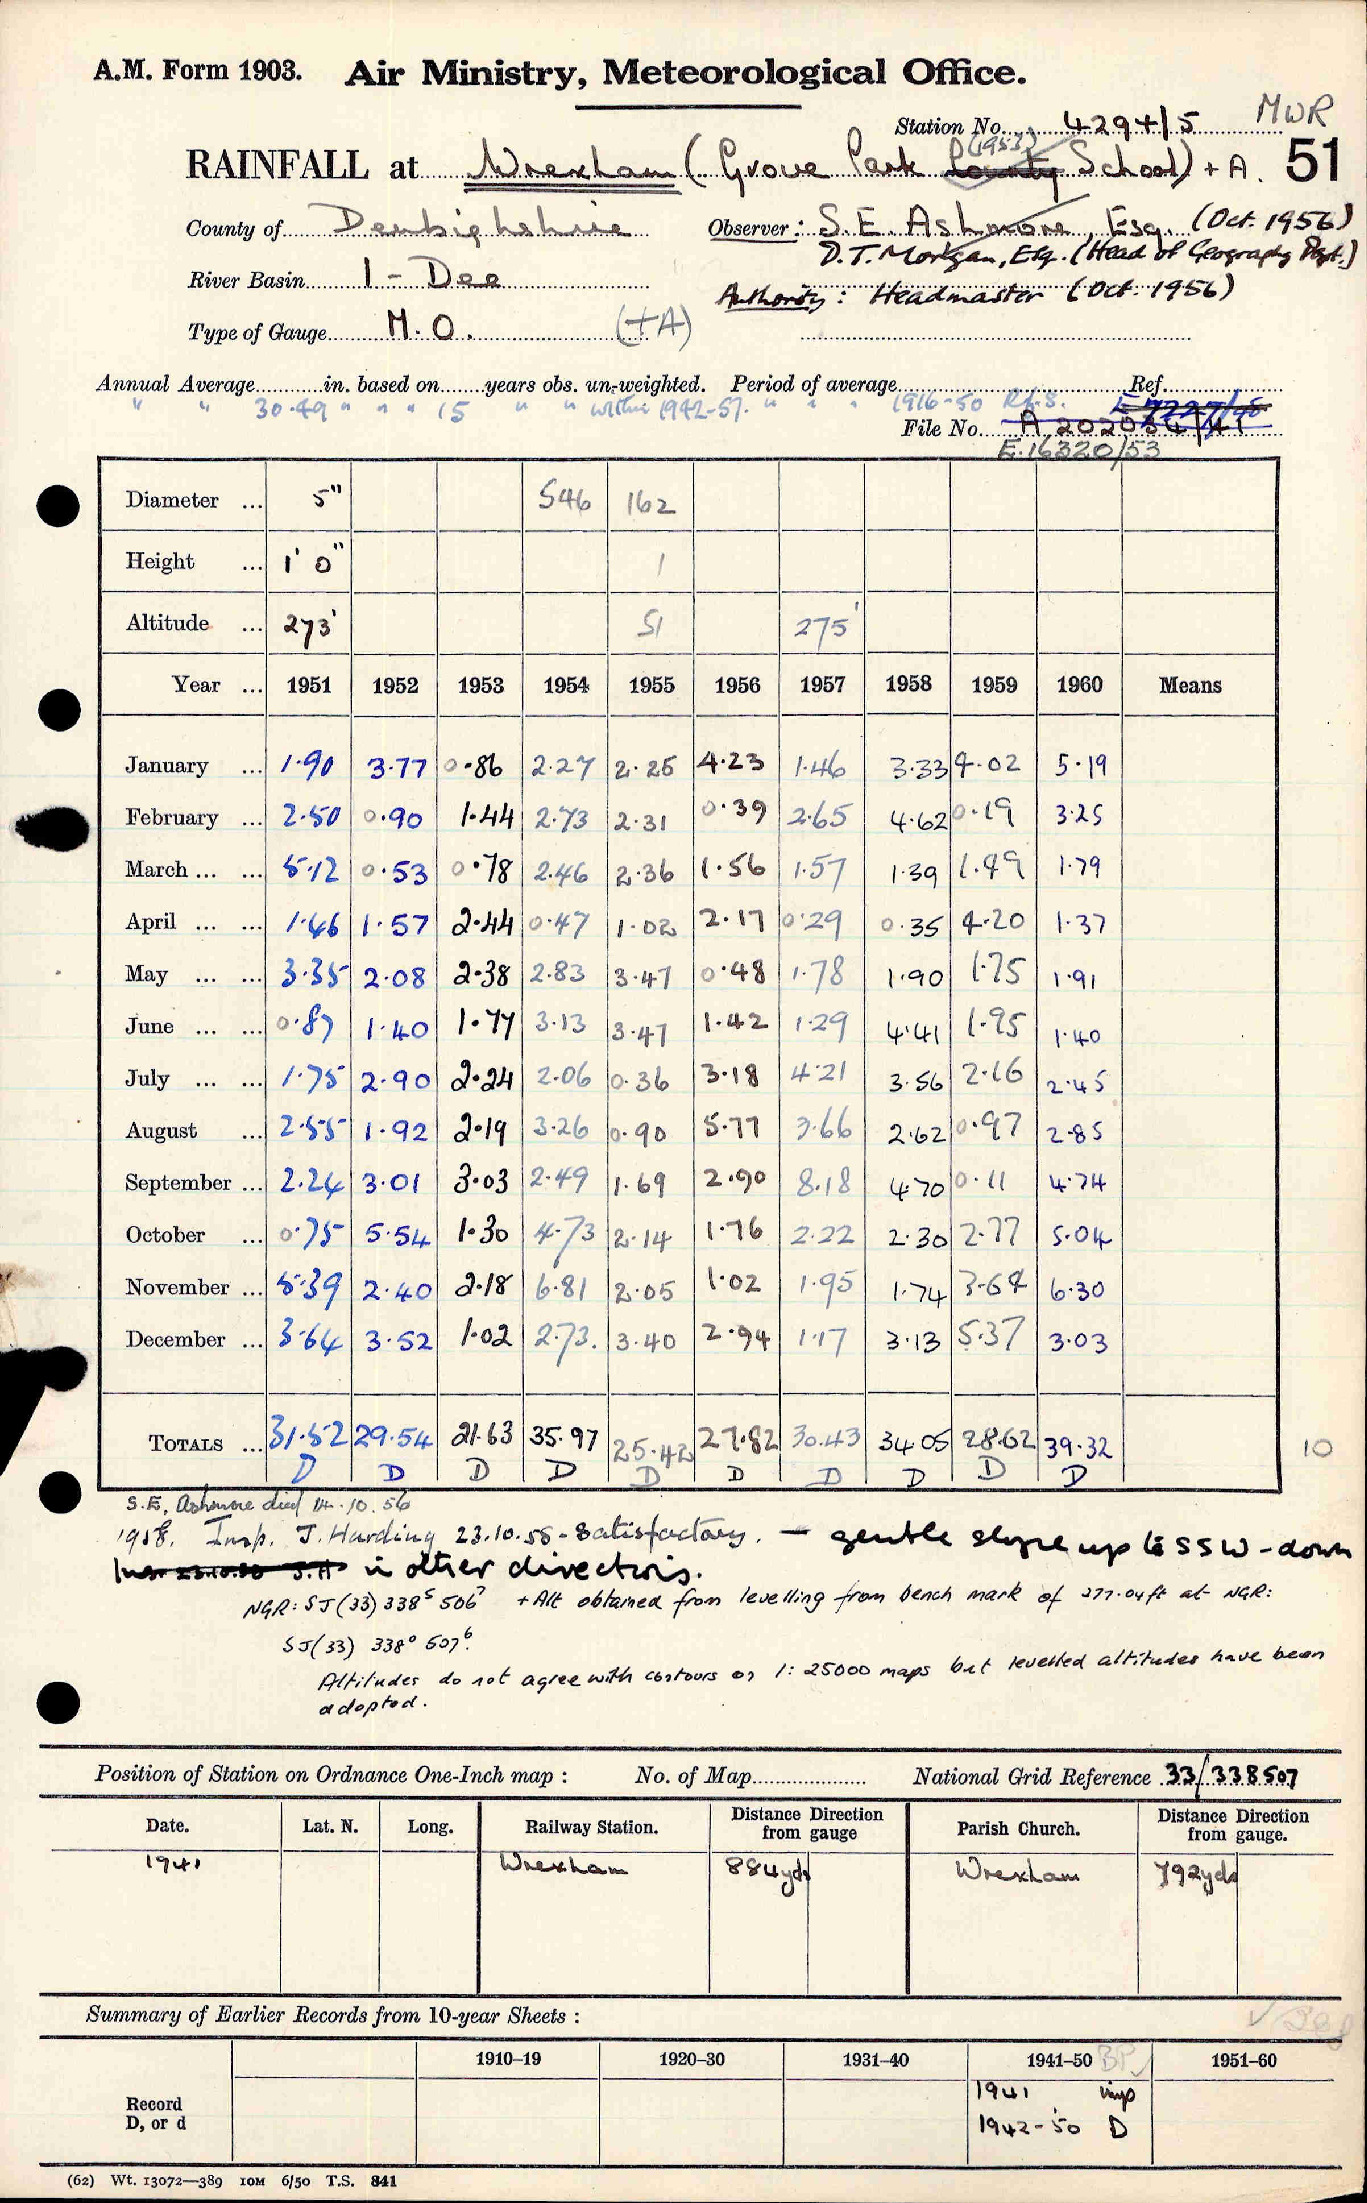 A.M. Form 1903. Air Ministry, Meteorological Office.
MWR
Station No. 4294/5
(1953)
RAINFALL at Wrexham (Grove Park County School) + A. 51
County of Denbighshire Observer: S.E. Ashmore, Esq. (Oct. 1956)
D.T. Morgan, Esq. (Head of Geography Dept.)
River Basin 1 - Dee
Authority: Headmaster (Oct. 1956)
Type of Gauge M.O. (+A)
Annual Average in. based on years obs. un-weighted. Period of average Ref.
" " 30.49 " " " 15 " " within 1942-57. " " " 1916-50
File No. A 202034/41
E.16320/53
Diameter ... 5" 546 162
Height ... 1' 0" 1
Altitude ... 273' 51 275'
Year ... 1951 1952 1953 1954 1955 1956 1957 1958 1959 1960 Means
January ... 1.90 3.77 0.86 2.27 2.25 4.23 1.46 3.33 4.02 5.19
February ... 2.50 0.90 1.44 2.73 2.31 0.39 2.65 4.62 0.19 3.25
March ... ... 5.12 0.53 0.78 2.46 2.36 1.56 1.57 1.39 1.49 1.79
April ... ... 1.46 1.57 2.44 0.47 1.02 2.17 0.29 0.35 4.20 1.37
May ... ... 3.35 2.08 2.38 2.83 3.47 0.48 1.78 1.90 1.75 1.91
June ... ... 0.87 1.40 1.77 3.13 3.47 1.42 1.29 4.41 1.95 1.40
July ... ... 1.75 2.90 2.24 2.06 0.36 3.18 4.21 3.56 2.16 2.45
August ... 2.55 1.92 2.19 3.26 0.90 5.77 3.66 2.62 0.97 2.85
September ... 2.24 3.01 3.03 2.49 1.69 2.90 8.18 4.70 0.11 4.74
October ... 0.75 5.54 1.30 4.73 2.14 1.76 2.22 2.30 2.77 5.04
November ... 5.39 2.40 2.18 6.81 2.05 1.02 1.95 1.74 3.64 6.30
December ... 3.64 3.52 1.02 2.73. 3.40 2.94 1.17 3.13 5.37 3.03
TOTALS ... 31.52 29.54 21.63 35.97 25.42 27.82 30.43 34.05 28.62 39.32 10
D D D D D D D D D D
S.E. Ashmore died 14.10.56
1958. Insp. J. Harding 23.10.58 - Satisfactory. - gentle slope up to SSW - down
in other directions.
NGR: SJ (33) 338⁵ 506⁷ + Alt obtained from levelling from bench mark of 277.04ft at NGR:
SJ (33) 338⁰ 507⁶.
Altitudes do not agree with contours on 1:25000 maps but levelled altitudes have been
adopted.
Position of Station on Ordnance One-Inch map : No. of Map National Grid Reference 33/338507
Date. Lat. N. Long. Railway Station. Distance Direction from gauge Parish Church. Distance Direction from gauge.
1941 Wrexham 884yds Wrexham 792yds
Summary of Earlier Records from 10-year Sheets :
1910–19 1920–30 1931–40 1941–50 1951–60
Record
D, or d
1941 imp
1942-50 D
(62) Wt. 13072—389 10M 6/50 T.S. 841